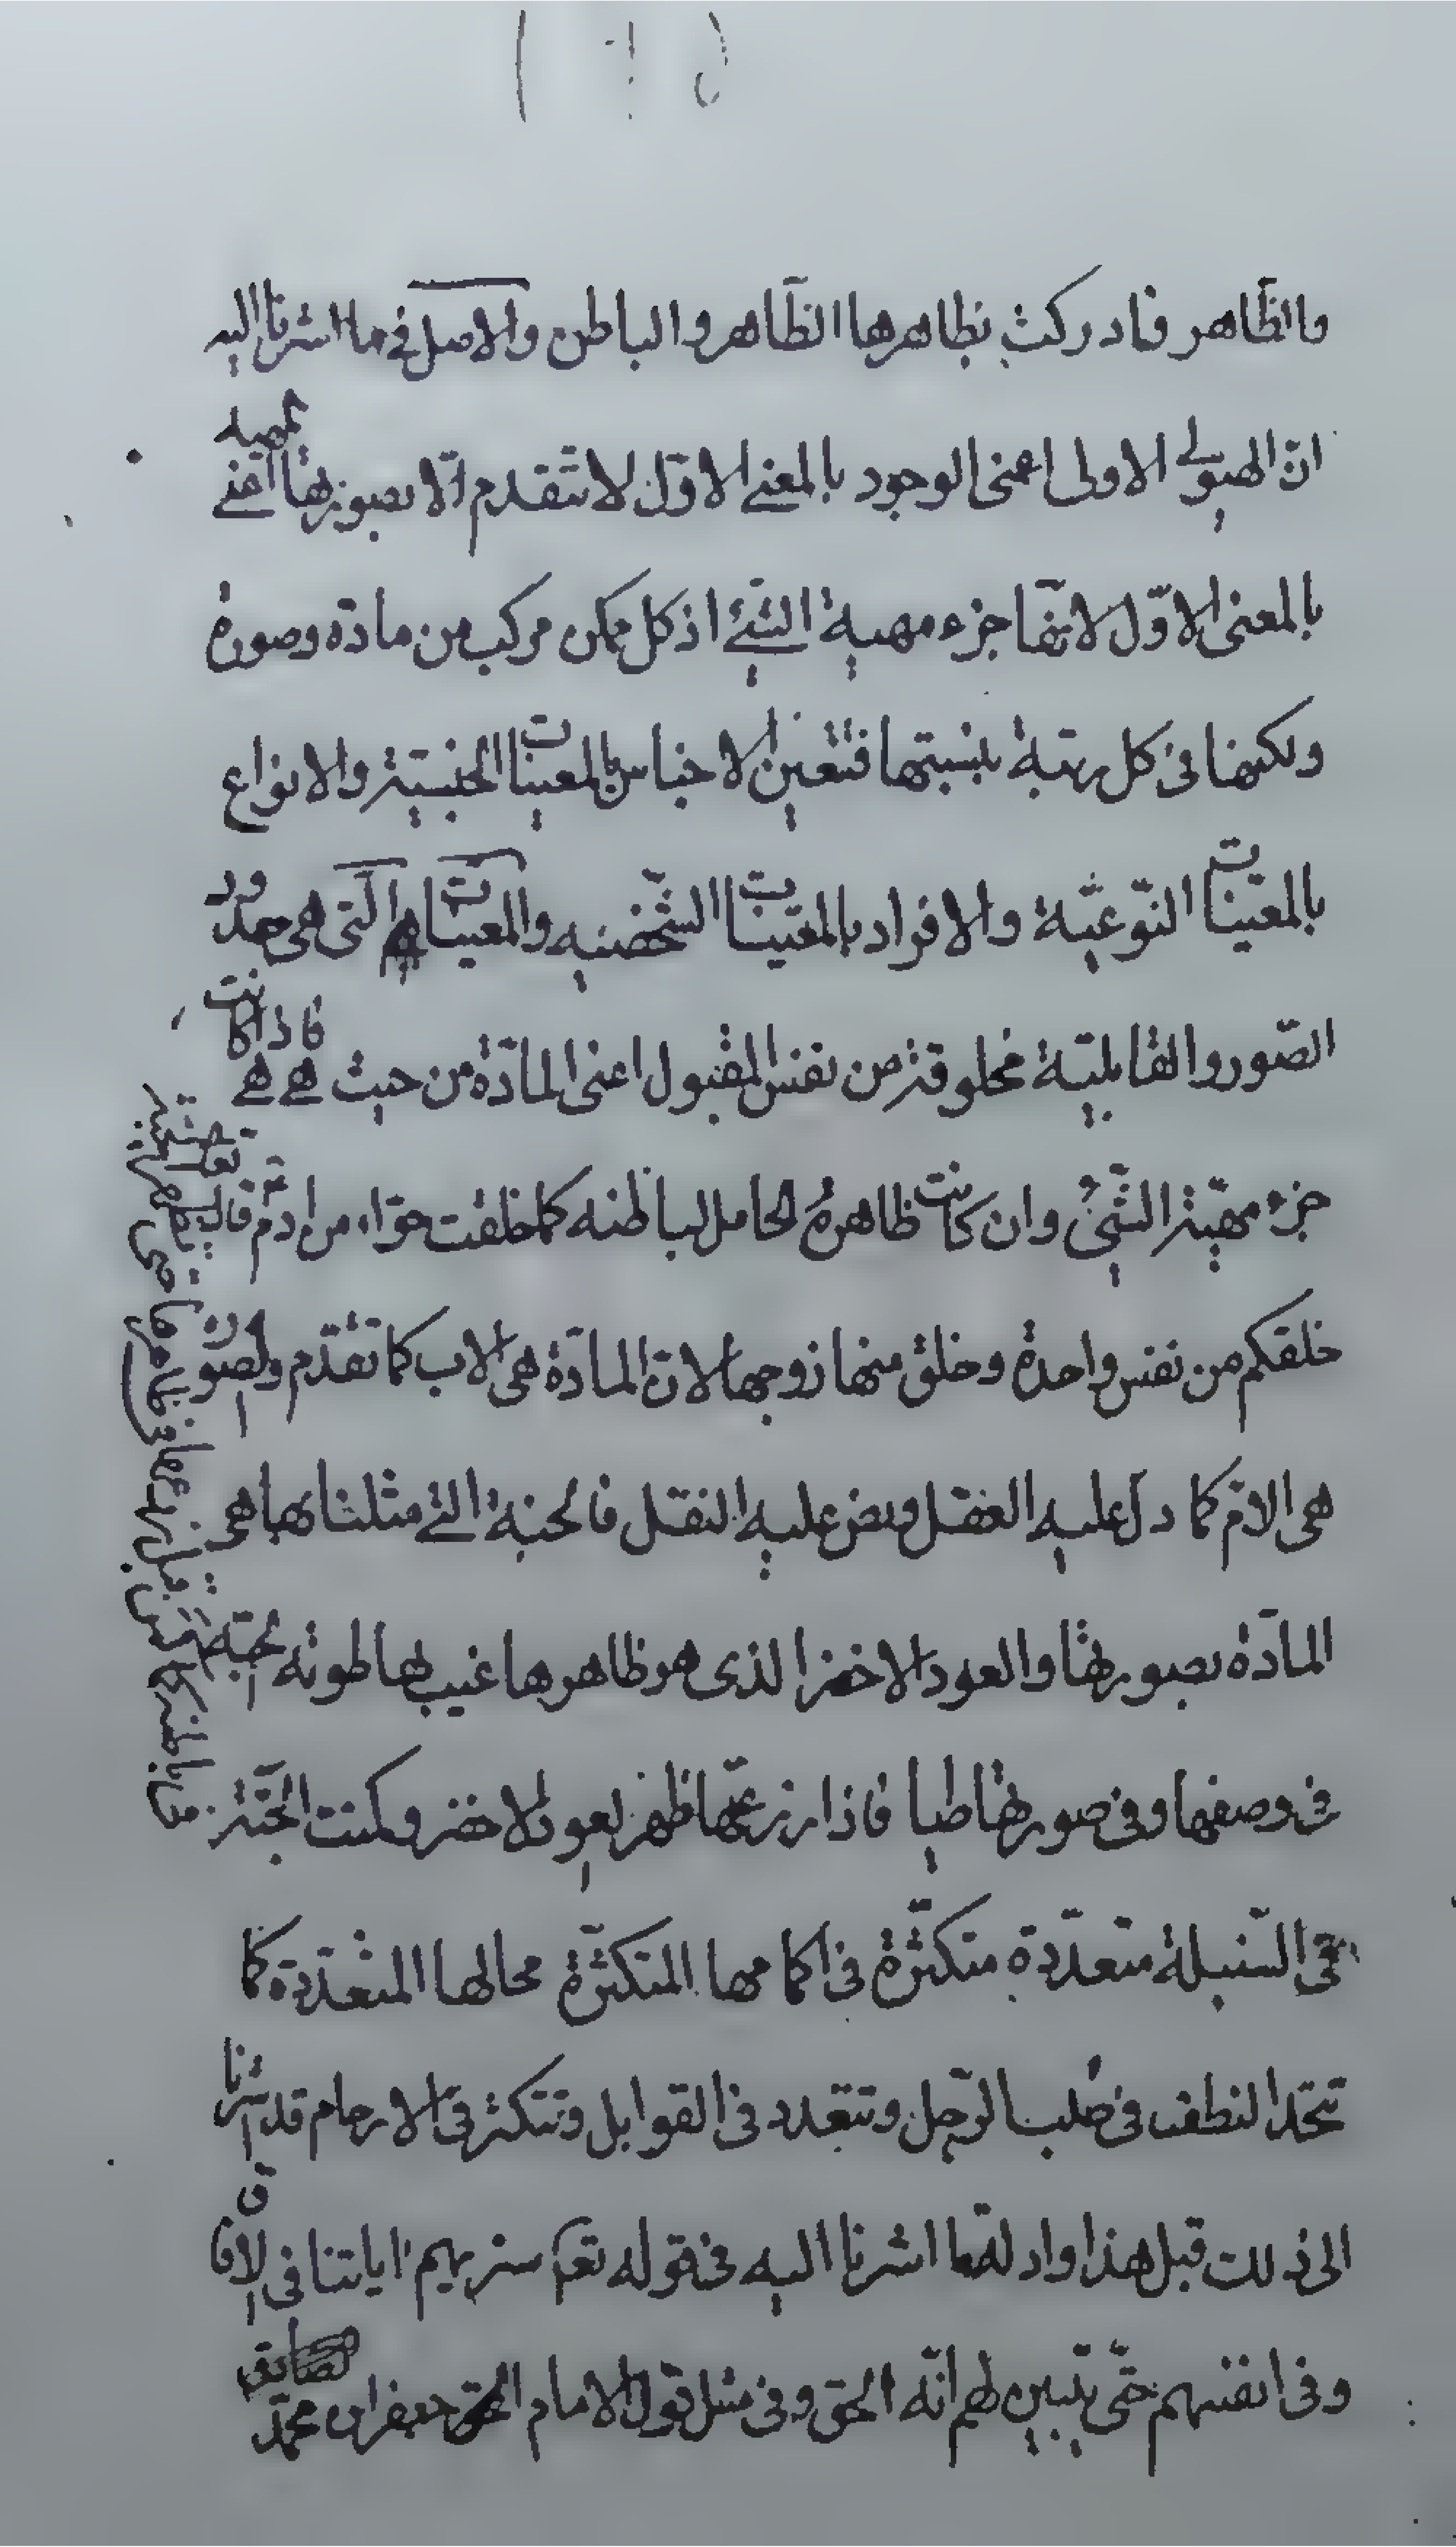 والظّاهر فادركت بظاهرها الظّاهر والباطن والاصل في ما اشرنا اليه
انّ الهيولى الاولى اعنى الوجود بالمعنى الاوّل لا تتقدم الّا بصورتها اعنى مهيته
بالمعنى الاوّل لانّها جزء مهية الشئ اذ كل ممكن مركب من مادّة وصورة
ولكنها فى كل رتبة بنسبتها فتتعين الاجناس بالمعينات الجنسية والانواع
بالمعيّنات النّوعيّة والافراد بالمعيّنات الشّخصيه والمعينات هى الّتى هى حدود
الصّور والقابليّة مخلوقة من نفس المقبول اعنى المادّة من حيث هى هى فاذا كانت
جزء مهيّة الشّئ وان كانت ظاهرة الحامل لباطنه كما خلقت حوّاء من ادم قال تع
خلقكم من نفس واحدة وخلق منها زوجها لانّ المادّة هى الاب كما تقدّم والصّورة
هى الامّ كما دلّ عليه العقل ونص عليه النقل فالحبة التى مثلنا بها هى
المادّة بصورتها والعود الاخضر الذى هو ظاهرها غيب بها طويّة الحبّة
فى وصفها وفى صورتها طيا فاذا زرعتها ظهر العود الاخضر وكمنت الحبّة
فى السّنبلة متعدّدة متكثّرة فى اكمامها المتكثّرة محالها المتعدّدة كما
تتحد النطف فى صُلب الرّجل وتتعدد فى القوابل وتتكثر فى الارحام قد اشرنا
الى ذلك قبل هذا وادلّة ما اشرنا اليه فى قوله تع سنريهم اياتنا فى الافاق
وفى انفسهم حتّى يتبين لهم انّه الحق وفى مثل قول الامام جعفر ابن محمّد الصادق